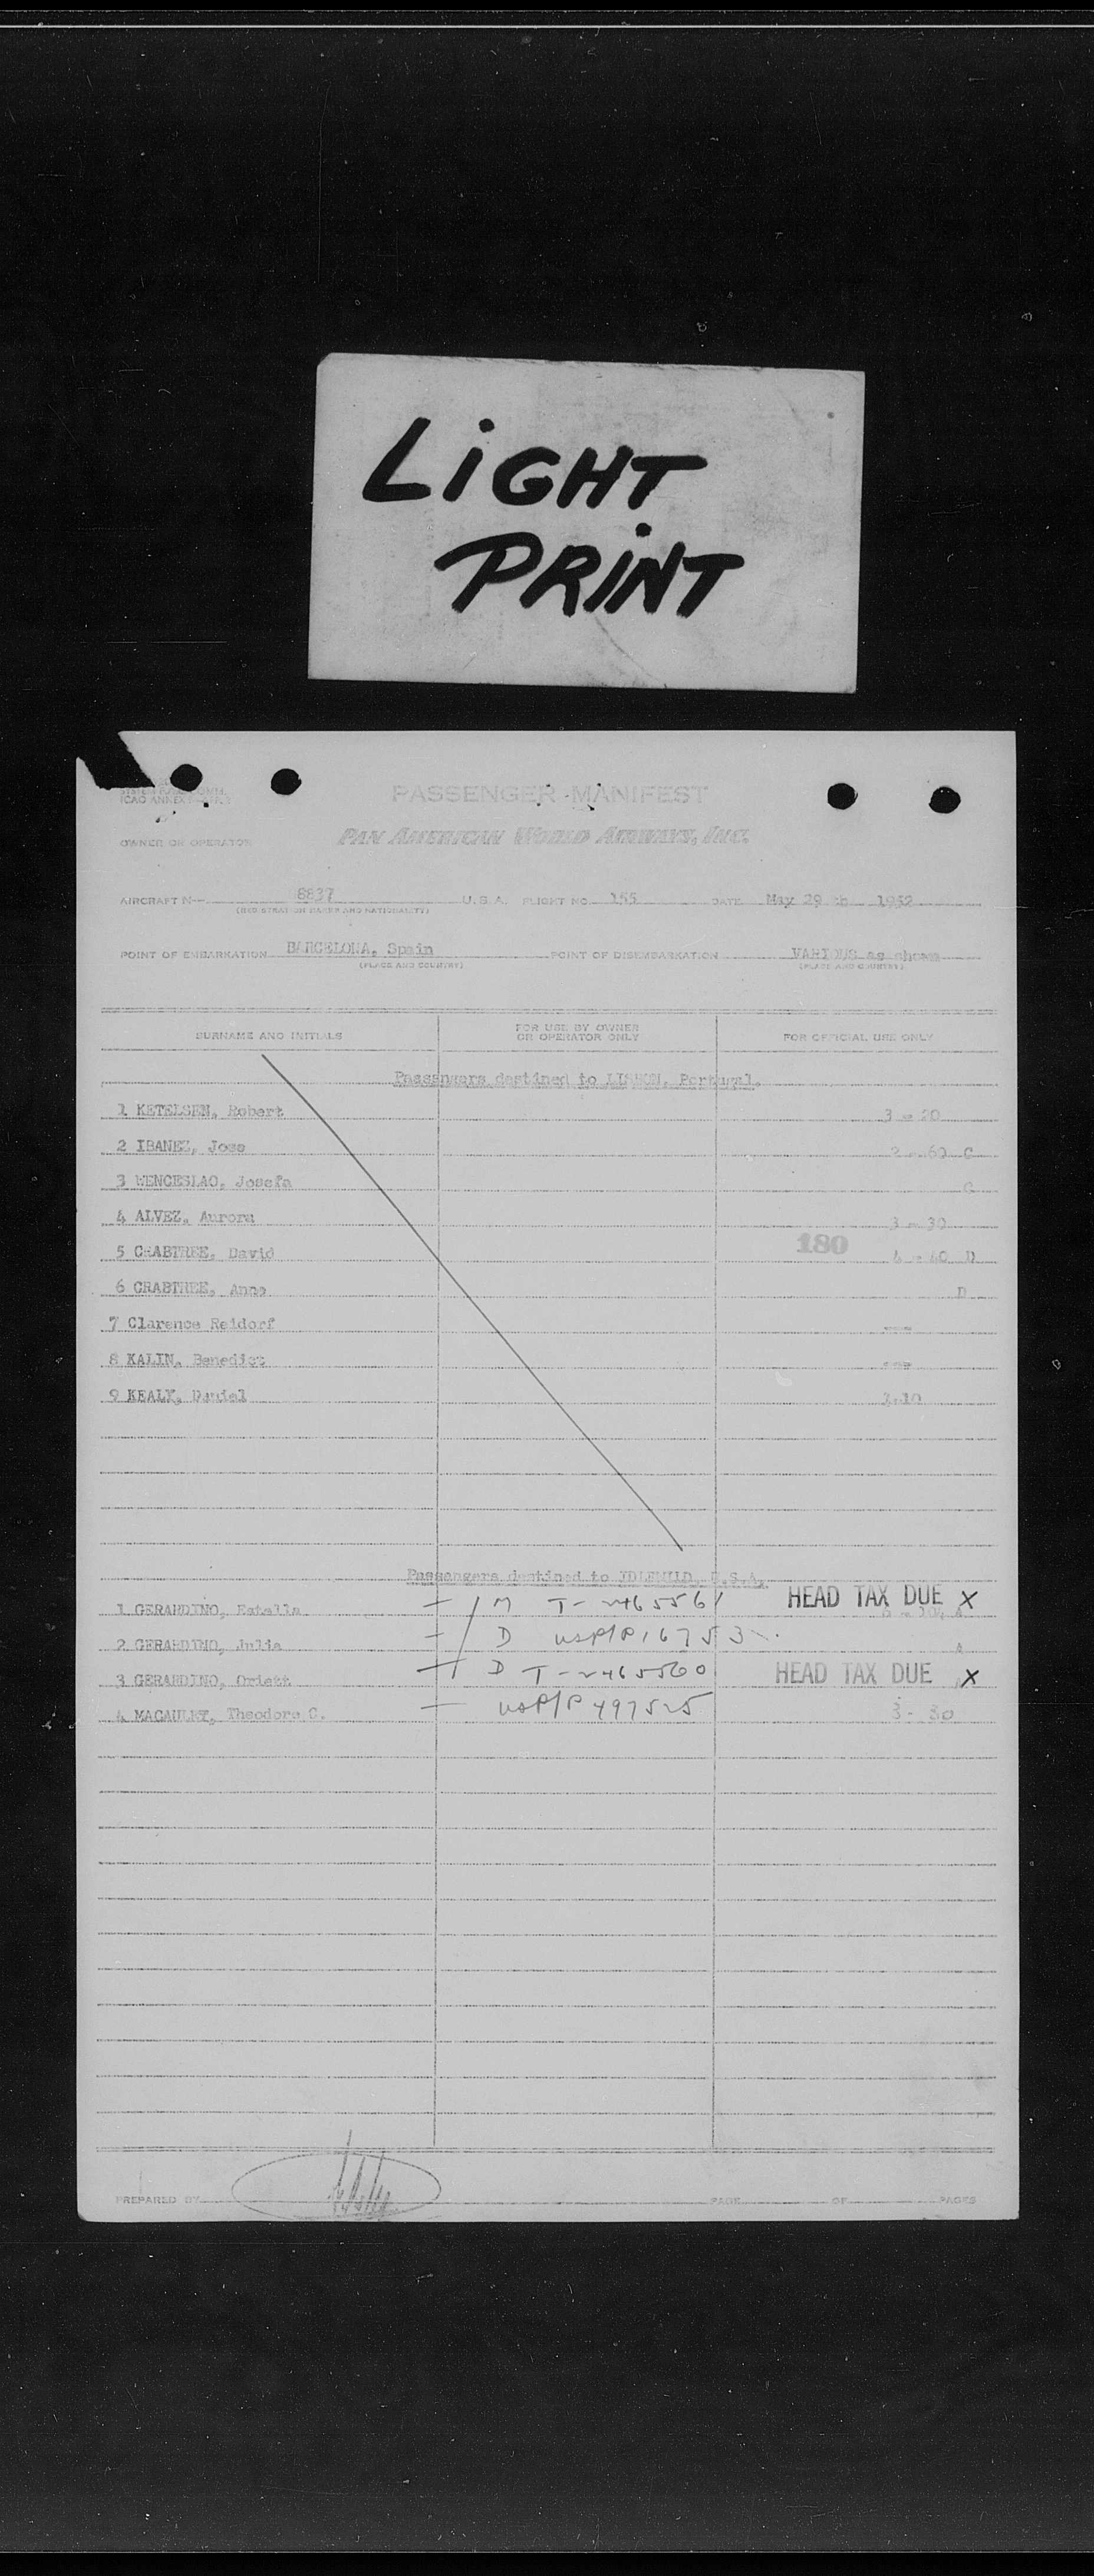 LiGHT
PRiNT
PASSENGER MANIFEST
OWNER OR OPERATOR
PAN AMERICAN WORLD AIRWAYS, INC.
AIRCRAFT N- 8837 U.S.A. FLIGHT NO. 155 DATE May 29 th 1952
(REGISTRATION MARKS AND NATIONALITY)
POINT OF EMBARKATION BARCELONA, Spain POINT OF DISEMBARKATION VARIOUS as shown
(PLACE AND COUNTRY) (PLACE AND COUNTRY)
SURNAME AND INITIALS FOR USE BY OWNER OR OPERATOR ONLY FOR OFFICIAL USE ONLY
Passengers destined to LISBON, Portugal.
1 KETELSEN, Robert 3 - 20
2 IBANEZ, Jose 2 - 60 C
3 WENCESLAO, Josefa C
4 ALVEZ, Aurora 3 - 30
180
5 CRABTREE, David 4 - 60 D
6 CRABTREE, Anne D
7 Clarence Reidorf ---
8 KALIN, Benedict ---
9 KEALY, Daniel 3-10
Passengers destined to IDLEWILD, U.S.A.
HEAD TAX DUE X
1 GERARDINO, Estella M T-2465561 A
2 GERARDINO, Julia D USP/P 16753 A
3 GERARDINO, Oriett D T-2465560 HEAD TAX DUE X
4 MACAULEY, Theodore C. USP/P 497525 3 - 30
PREPARED BY PAGE OF PAGES